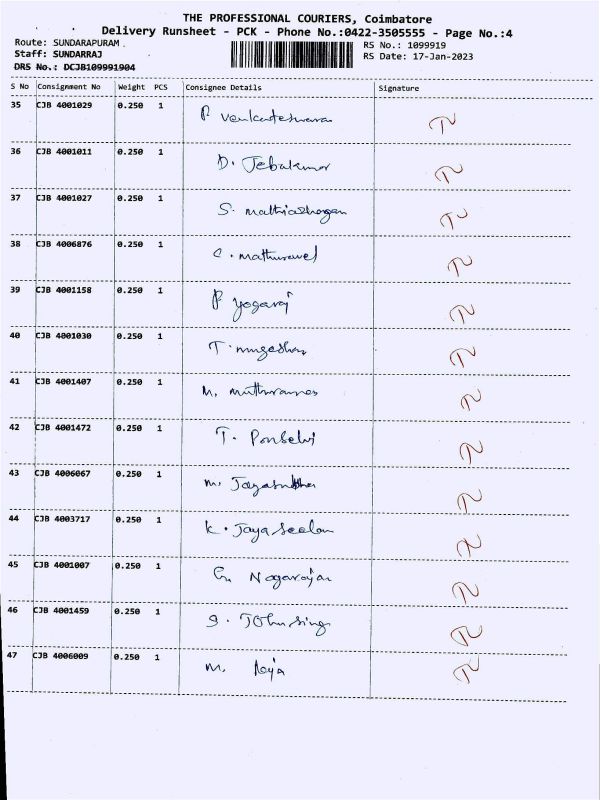 THE PROFESSIONAL COURIERS, Coimbatore
Delivery Runsheet - PCK - Phone No.:0422-3505555 - Page No.:4
Route: SUNDARAPURAM . RS No.: 1099919
Staff: SUNDARRAJ RS Date: 17-Jan-2023
DRS No.: DCJB109991904
S No Consignment No Weight PCS Consignee Details Signature
35 CJB 4001029 0.250 1 P
36 CJB 4001011 0.250 1 D. Jebakumar
37 CJB 4001027 0.250 1 S. mathiazhagan
38 CJB 4006876 0.250 1 C. mathuravel
39 CJB 4001158 0.250 1 P yogaraj
40 CJB 4001030 0.250 1 T.
41 CJB 4001407 0.250 1 M.
42 CJB 4001472 0.250 1 T. Ponselvi
43 CJB 4006067 0.250 1 m.
44 CJB 4003717 0.250 1 K. Jaya seelan
45 CJB 4001007 0.250 1 G. Nagarajan
46 CJB 4001459 0.250 1 S. JOhnsing
47 CJB 4006009 0.250 1 m. Raja